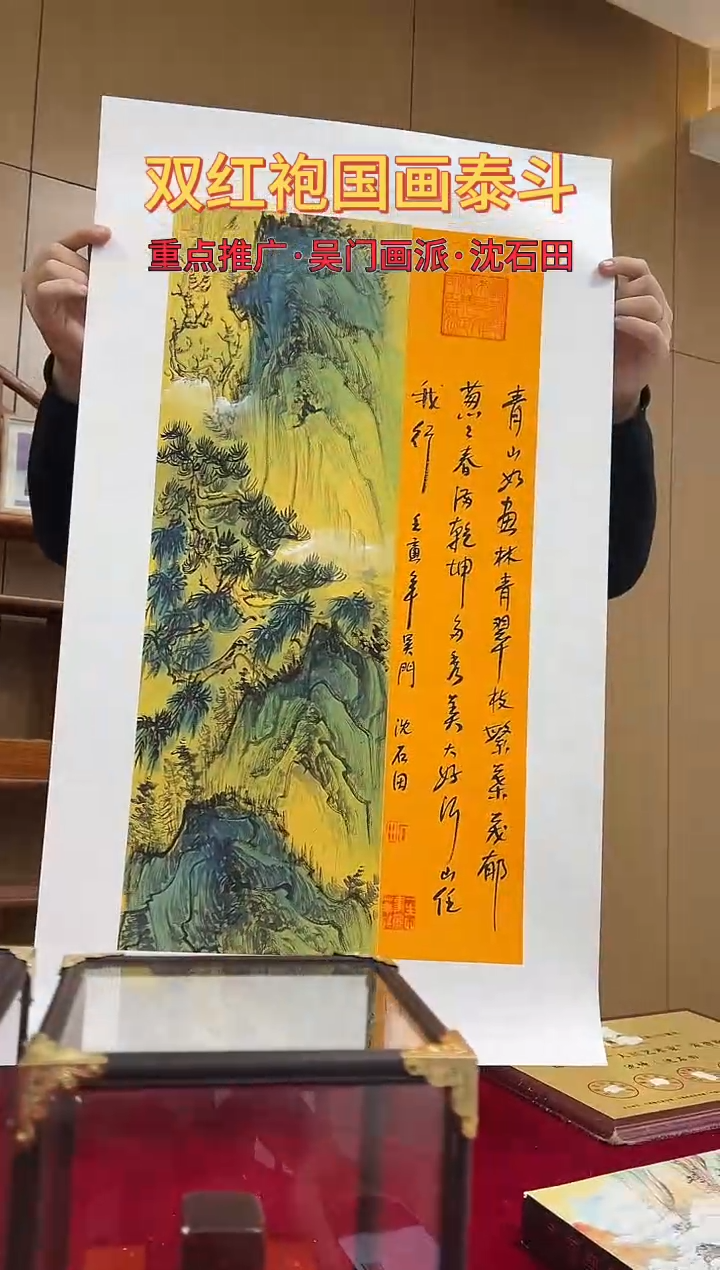 双红袍国画泰斗
重点推广·吴门画派·沈石田
青山如画林青翠枝繁葉茂郁
葱々春满乾坤多秀美大好河山任
我行
壬寅年吴門
沈石田